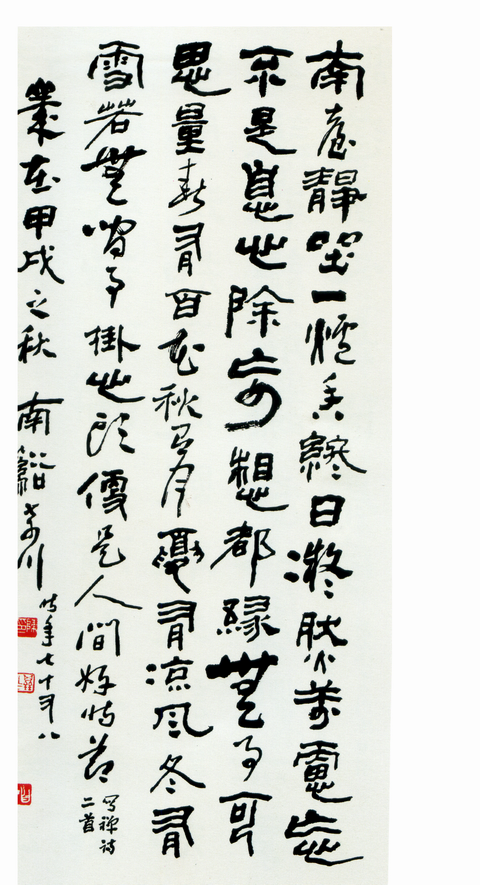 南臺靜坐一爐香終日凝然萬慮忘
不是息心除妄想都緣無事可
思量春有百花秋有月夏有涼風冬有
雪若無閒事掛心頭便是人間好時節
寫禪詩
二首
歲在甲戌之秋 南 川
時年七十又八